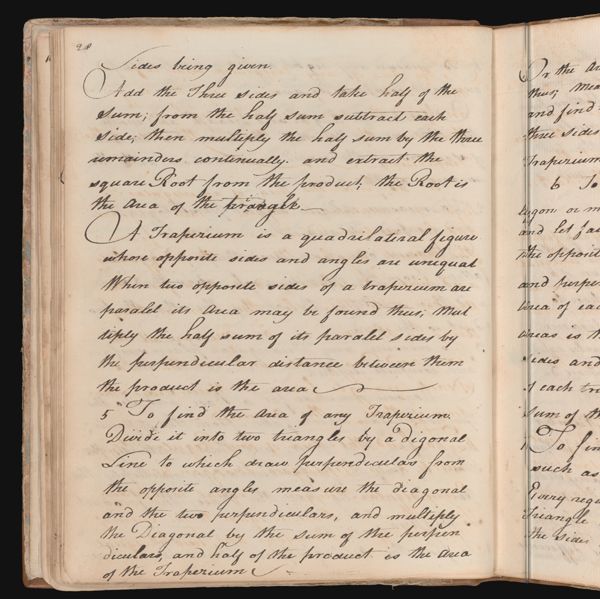 28
Sides being given.
Add the Three sides and take half of the
Sum; from the half sum subtract each
Side; then multiply the half sum by the three
remainders continually. and extract the
square Root from the product; the Root is
the area of the triangle.
A Trapezium is a quadrilateral figure
whose opposite sides and angles are unequal
When two opposite sides of a trapezium are
paralel its area may be found thus; Mul
tiply the half sum of its paralel sides by
the perpendicular distance between them
the product is the area
5 To find the area of any Trapezium.
Divide it into two triangles by a digonal
Line to which draw perpendiculars from
the opposite angles measure the diagonal
and the two perpendiculars, and multiply
the Diagonal by the sum of the perpen
diculars, and half of the product is the area
of the Trapezium
Or the
thus; mea
and find
three sides
Trapezium
6 To
and let fa
the opposit
and perpen
area of eac
areas is th
sides and
of each tri
sum of th
To fin
such as
Every regu
triangle
the sides